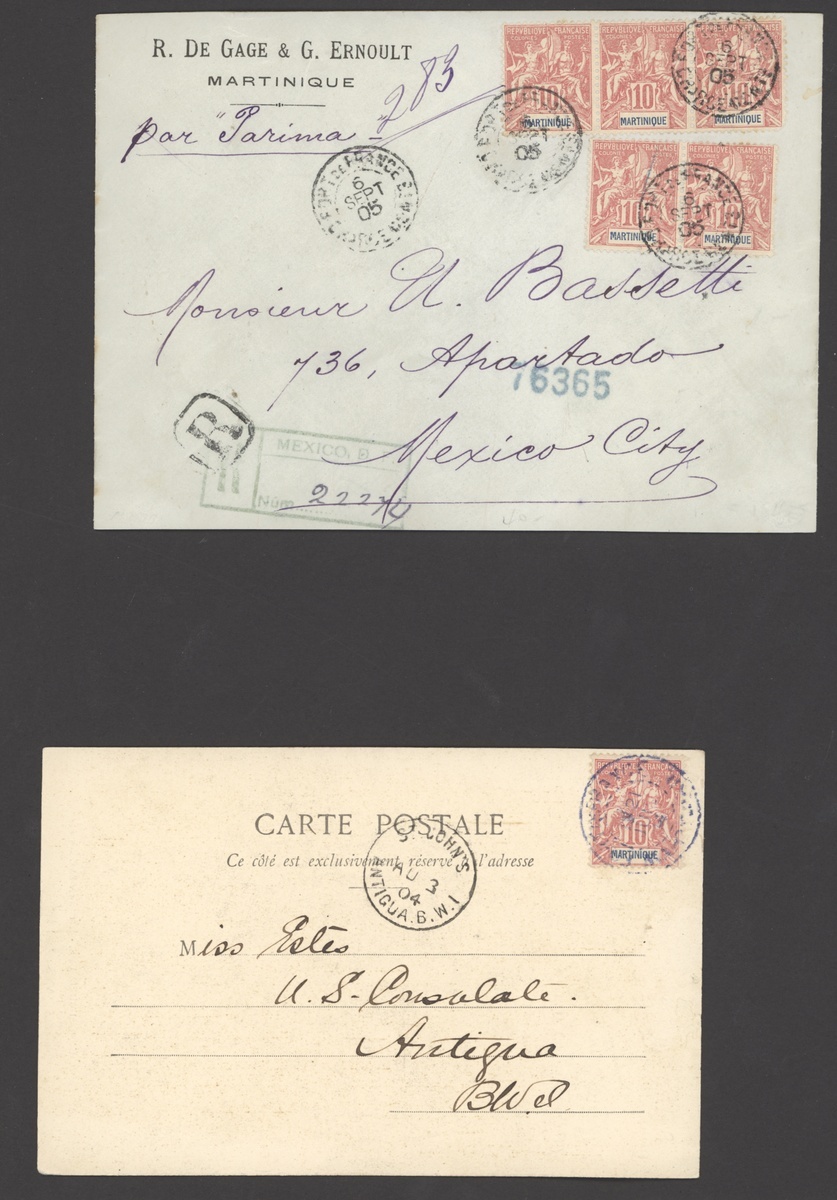 R. DE GAGE & G. ERNOULT
MARTINIQUE
par "Parima"
283
REPVBLIQVE FRANÇAISE
COLONIES POSTES
10
MARTINIQUE
REPVBLIQVE FRANÇAISE
10
MARTINIQUE
REPVBLIQVE FRANÇAISE
10
MARTINIQUE
REPVBLIQVE FRANÇAISE
10
MARTINIQUE
REPVBLIQVE FRANÇAISE
10
MARTINIQUE
FORT DE FRANCE
6
SEPT
05
6
SEPT
05
SEPT
05
FRANCE
6
SEPT
05
Monsieur U. Bassetti
736, Apartado
76365
Mexico City
R
MEXICO, D.
R
Núm. 22274
CARTE POSTALE
Ce côté est exclusivement réservé à l'adresse
ST JOHN'S
AU 3
04
ANTIGUA. B.W.I
REPVBLIQVE FRANÇAISE
10
MARTINIQUE
Miss Estes
U. S. Consulate.
Antigua
B W I